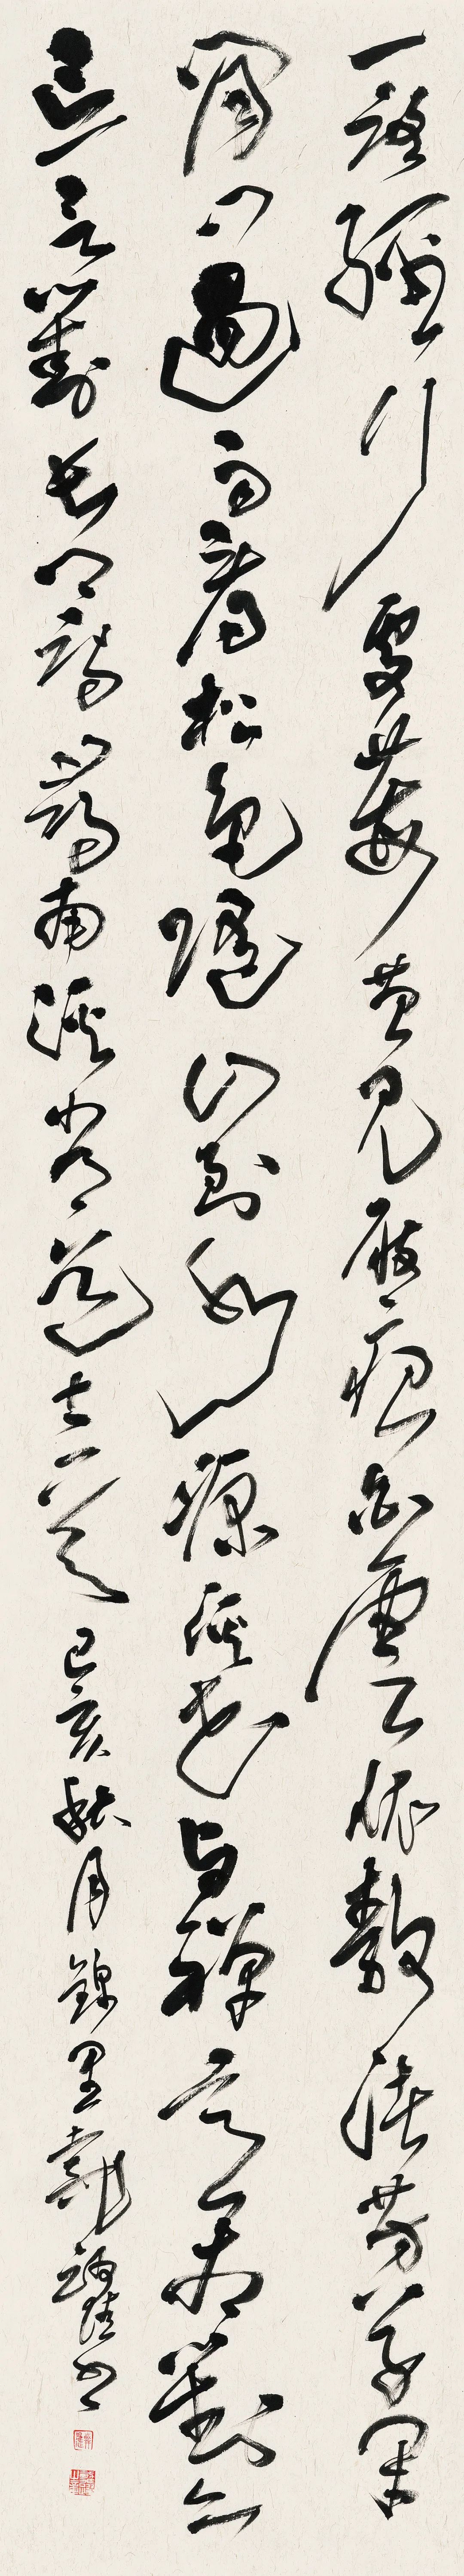 一路經行處莓苔見屐痕白雲依靜渚芳草閉
閑門過雨看松色隨山到水源溪花与禪意相對亦
忘言劉長卿詩尋南溪常道士一首己亥秋月錦里龍書